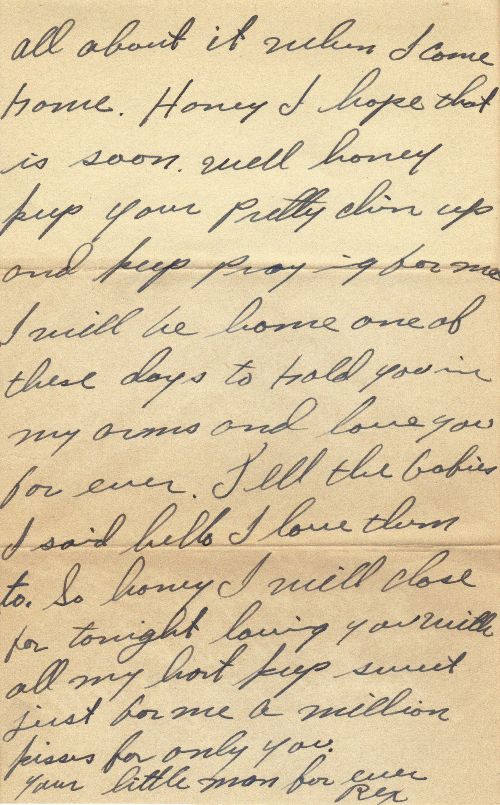 all about it when I come
home. Honey I hope that
is soon. well honey
keep your Pretty chin up
and keep praying for me
I will be home one of
these days to hold you in
my arms and love you
for ever. Tell the babies
I said hello I love them
to. So honey I will close
for tonight loving you with
all my hart keep sweet
just for me a million
kisses for only you.
your little man for ever
Rex